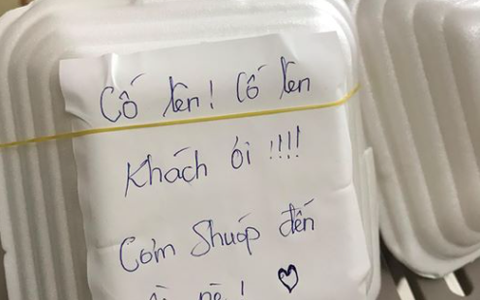 Cố lên! Cố lên
Khách ói !!!!
Cơm Shuốp đến
nè! ♡